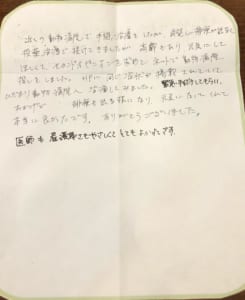 近くの動物病院で手術、治療をしたが、再発し排尿が出なく
投薬治療で続けてきましたが 高齢でもあり 元気にして
ほしくて、セカンドオピニオンを求めて ネットで動物病院
探しをしました。HPに同じ症状が掲載されていて
ひだまり動物病院へ 治療してみました。緊急手術をしてもらい、
おかげで 排尿も出る様になり 元気になってくれて
本当に良かったです。ありがとうございました。
医師も看護師さんもやさしくてとてもよいです